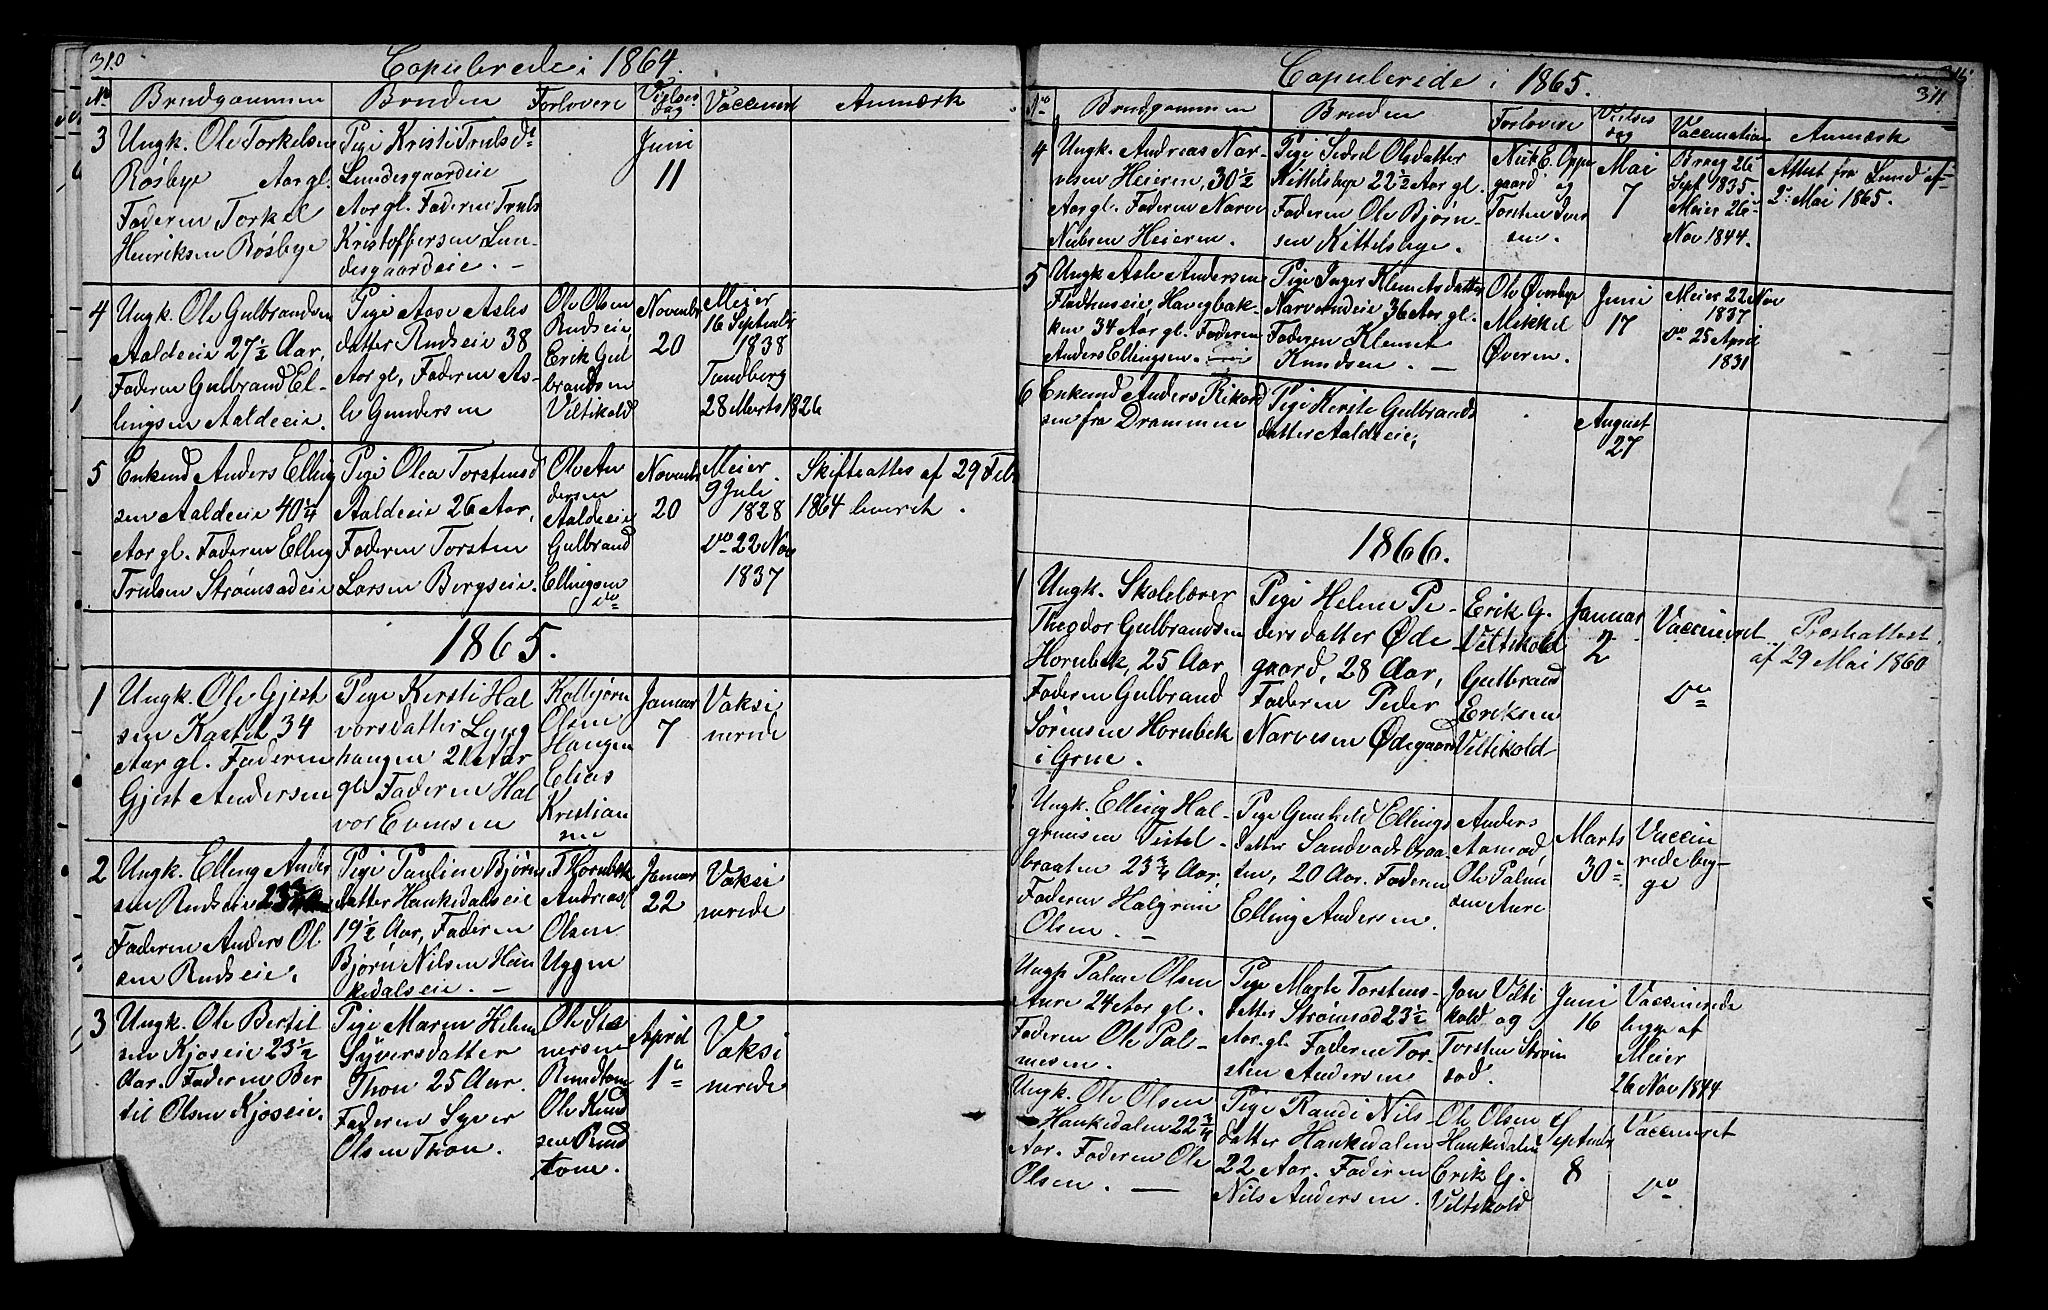 310
Copulerede i 1864.
No Brudgommen Bruden Forlovere Vielses dag Vaccineret Anmærk
3 Ungk. Ole Torkelsen
Røsbye Aar gl.
Faderen Torkel
Henriksen Røsbye
Pige Kristi Trulsdr
Lundesgaardeie
Aar gl. Faderen Truls
Kristoffersen Lun-
desgaardeie. -
Juni
11
4 Ungk. Ole Gulbrandsen
Aaldeeie 27½ Aar,
Faderen Gulbrand El-
lingsen Aaldeeie.
Pige Aase Asles
datter Rudseie 38
Aar gl, Faderen As-
le Gundersen
Ole Olsen
Rudseie
Erik Gul
brandsen
Viltikold
Novembr
20
Meier
16 Septembr
1838
Tandberg
28 Marts 1826
5 Enkemd Anders Elling
sen Aaldeeie 40¼
Aar gl. Faderen Elling
Trulsen Strømsodeie
Pige Olea Torstensd
Aaldeeie 26 Aar,
Faderen Torsten
Larsen Bergseie.
Ole An
dersen
Aaldeeie
Gulbrand
Ellingsen
do
Novembr
20
Meier
9 Juli
1828
do 22 Nov
1837
Skifteattes af 29 Febr
1864 leveret.
1865.
1 Ungk. Ole Gjest
sen Kastel 34
Aar gl. Faderen
Gjest Andersen
Pige Kersti Hal
vorsdatter Lyng
haugen 21 Aar
gl. Faderen Hal
vor Evensen
Kolbjørn
Olsen
Haugen
Elias
Kristian
sen
Januar
7
Vaksi
nerede
2 Ungk. Elling Ander
sen Rudseie
Faderen Anders Ol
sen Rudseie.
Pige Pauline Bjørns
datter Haukedalseie
19½ Aar, Faderen
Bjørn Nilsen Hau
kedalseie. -
T Hornbek
Andreas
Olsen
Uggen
Januar
22
Vaksi
nerede
3 Ungk. Ole Bertil
sen Kjøseie 23½
Aar. Faderen Ber
til Olsen Kjøseie.
Pige Maren Helene
Syversdatter
Thon 25 Aar.
Faderen Syver
Olsen Thon.
Ole Ste
nersen
Rundtom
Ole Knud
sen Rund
tom.
April
1
Vaksi
nerede
311
Copulerede i 1865.
No Brudgommen Bruden Forlovere Vielses dag Vaccination Anmærk
4 Ungk. Andreas Nar-
vesen Heieren, 30½
Aar gl. Faderen Narve
Nielsen Heieren.
Pige Sidsel Olsdatter
Kittelsbye 22½ Aar gl.
Faderen Ole Bjørn-
sen Kittelsbye.
E. Oppe
gaard og
Torsten Iver
sen.
Mai
7
26
Sept 1835.
Meier 26
Nov 1844.
Attest fra Lund af
2 Mai 1865.
5 Ungk Asle Andersen
Fladhuseie, Havigbak-
ken 34 Aar gl. Faderen
Anders Ellingsen.
Pige Inger Klemetsdatter
Narverudeie 36 Aar gl.
Faderen Klemet
Knudsen. -
Ole Øverbye
Mikkel
Øveren.
Juni
17
Meier 22 Nov
1837
do 25 April
1831
6 Enkemd Anders Rikard
sen fra Drammen
Pige Kersti Gulbrands
datter Aaldeeie,
August
27
1866.
1 Ungk. Skolelærer
Theodor Gulbrandsen
Hornbek, 25 Aar
Faderen Gulbrand
Sørensen Hornbek
i Grue.
Pige Helene Pe-
dersdatter Øde
gaard, 28 Aar,
Faderen Peder
Narvesen Ødegaard
Erik G.
Viltikold
Gulbrand
Eriksen
Viltikold
Januar
2
Vaccineret
do
Presteattest
af 29 Mai 1860
Ungk. Elling Hal-
grimsen Tistel-
braaten 23¾ Aar,
Faderen Halgrim
Olsen. -
Pige Gunhild Ellings
datter Sandvadsbraa
ten, 20 Aar. Faderen
Elling Andersen.
Anders
Aamod,
Ole Palme
sen Aure
Marts
30
Vaccin
rede beg-
ge
Ungk Palme Olsen
Aure 24 Aar gl.
Faderen Ole Pal-
mesen.
Pige Marte Torstens-
datter Strømsod 23½
Aar gl. Faderen Tor-
sten Andersen
Jon Vilti
kold og
Torsten Strøm
sod.
Juni
16
Vaccinerede
begge af
Meier
26 Nov 1844
Ungk. Ole Olsen
Haukedalen 22¾
Aar. Faderen Ole
Olsen. -
Pige Randi Nils-
datter Haukedalen
22 Aar. Faderen
Nils Andersen.
Ole Olsen
Haukedalen
Erik G.
Viltikold
Septembr
8
Vaccineret
do